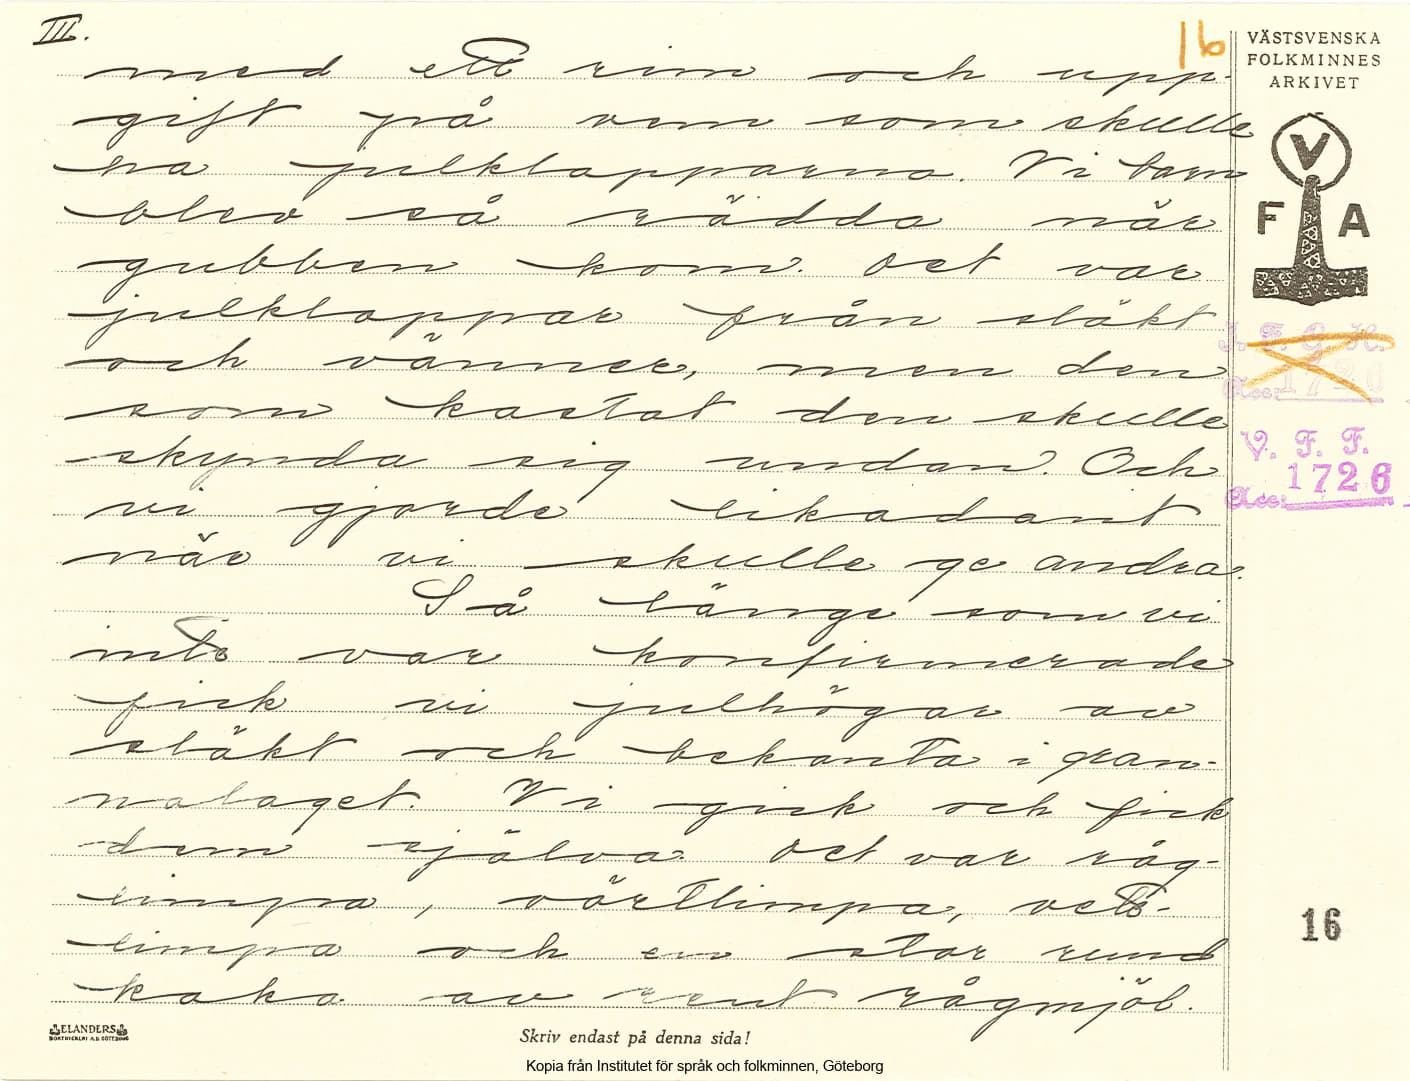 III.
16
VÄSTSVENSKA
FOLKMINNES
ARKIVET
V
F A
med ett rim och upp-
gift på vem som skulle
ha julklapparna. Vi barn
blev så rädda när
gubben kom. Det var
julklappar från släkt
och vänner, men den
som kastat den skulle
skynda sig undan. Och
vi gjorde likadant
när vi skulle ge andra.
Så länge som vi
inte var konfirmerade
fick vi julhögar av
släkt och bekanta i gran-
nalaget. Vi gick och fick
dem själva. Det var råg-
limpa, vörtlimpa, vete-
limpa och en stor rund
kaka av rent rågmjöl.
I. F. G. H.
Acc: 1726
V. F. F.
Acc: 1726
16
ELANDERS
BOKTRYCKERI A.B. GÖTEBORG
Skriv endast på denna sida!
Kopia från Institutet för språk och folkminnen, Göteborg